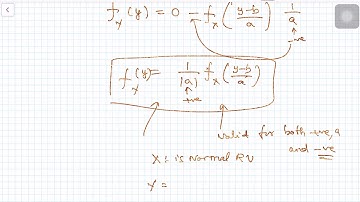 f_x (y) = 0 - f_x ( (y-b)/a ) 1/a
-ve
f_x (y) = 1/|a| f_x ( (y-b)/a )
+ve
valid for both +ve, a
and -ve
X = is normal RV
Y =